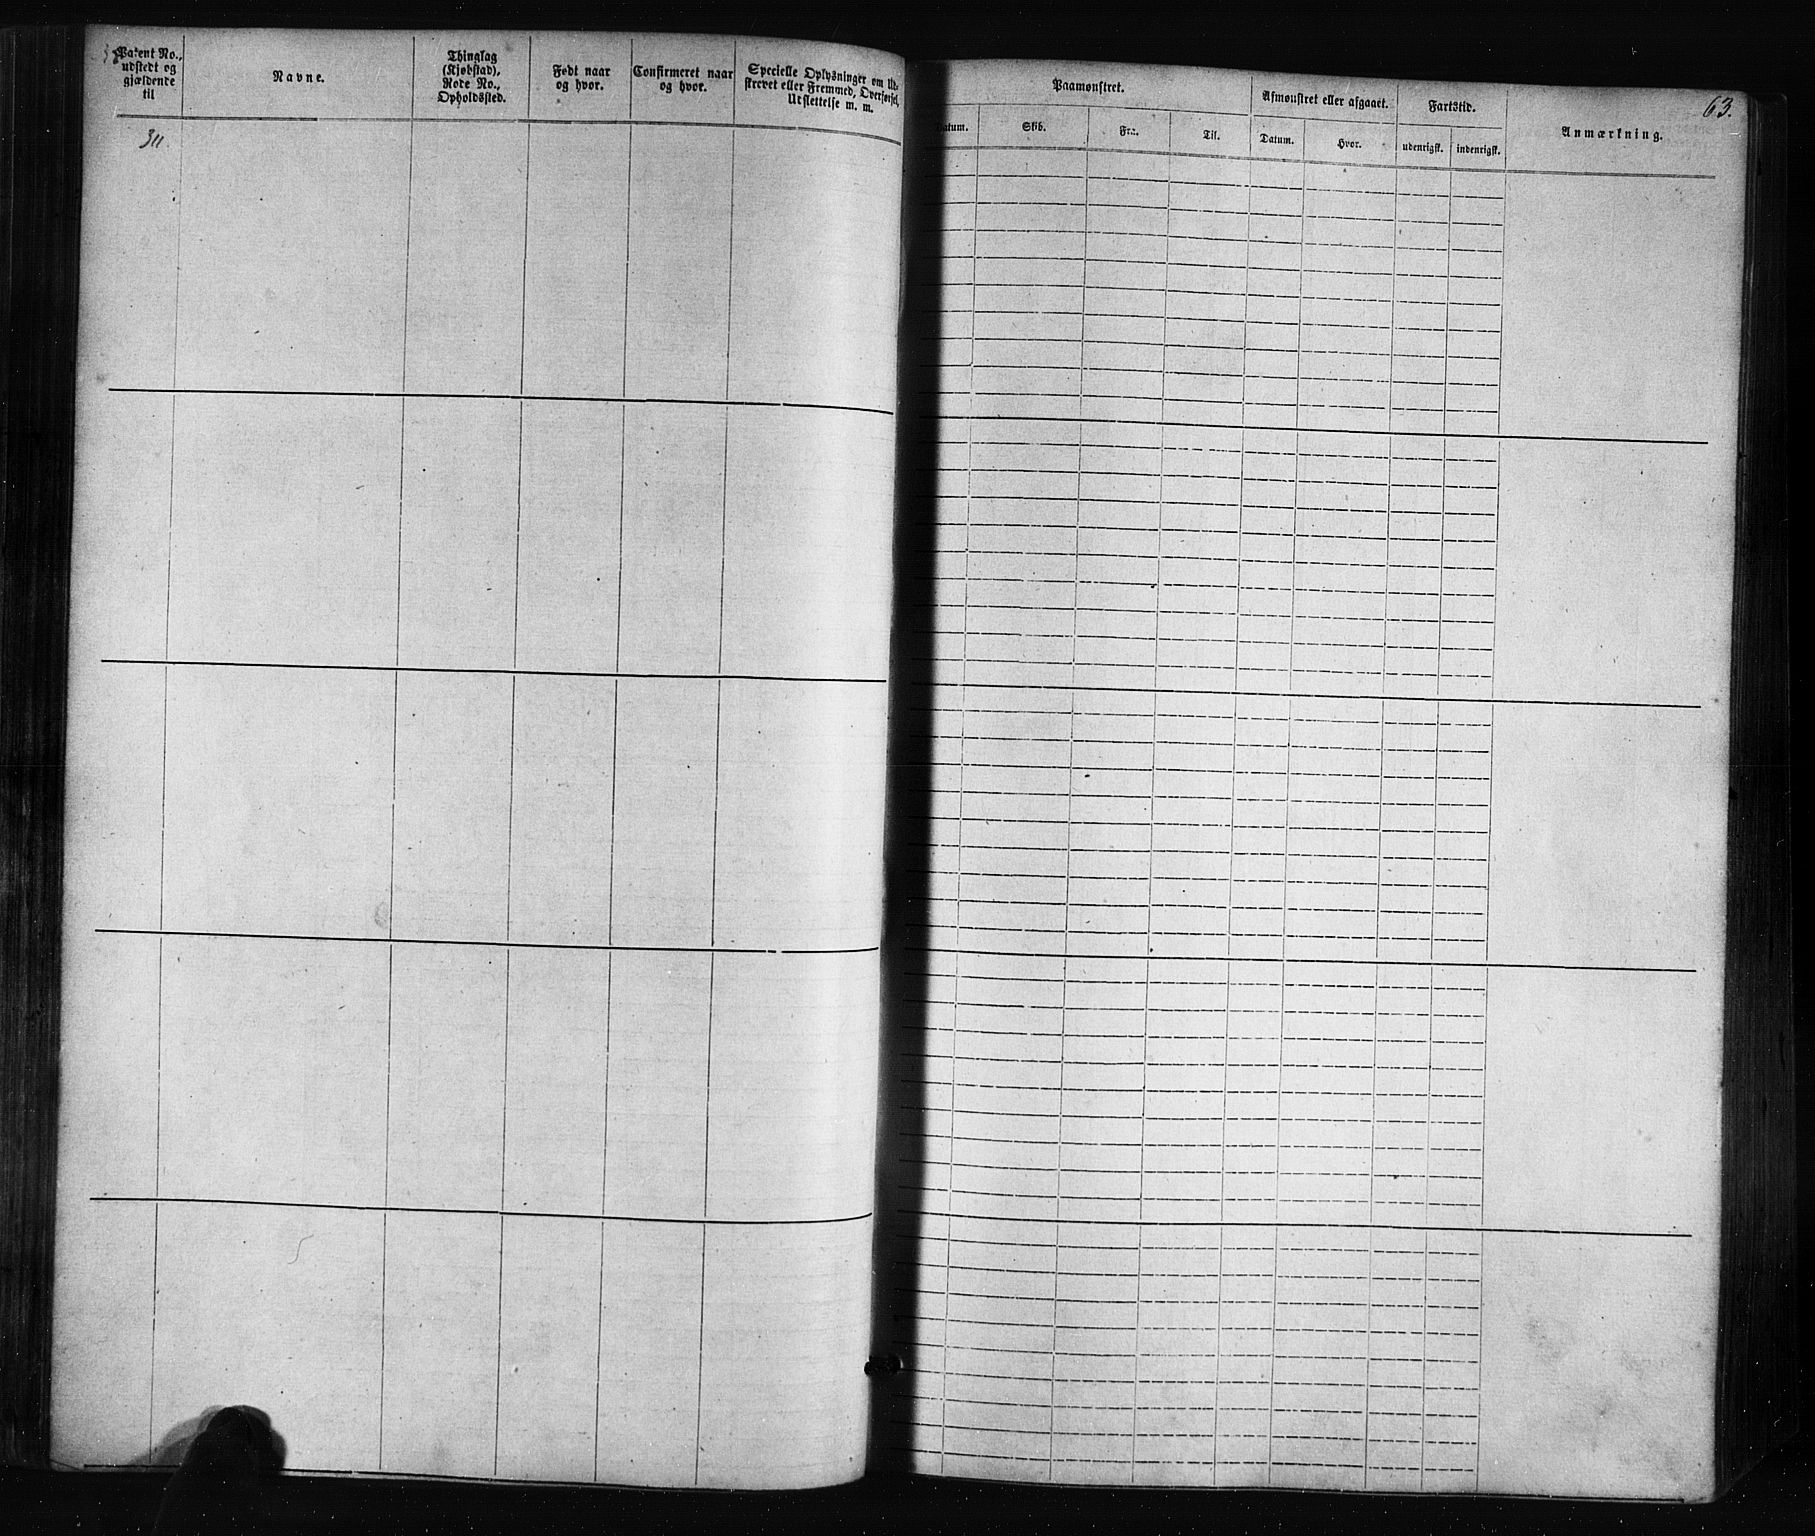 Patent No.,
udstedt og
gjældende
til
Navne.
Thinglag
(Kjøbstad),
Rode No.,
Opholdssted.
Født naar
og hvor.
Confirmeret naar
og hvor.
Specielle Oplysninger om Ud-
skrevet eller Fremmed, Overførsel,
Udslettelse m. m.
311.
63.
Paamønstret.
Afmønstret eller afgaaet.
Fartstid.
Anmærkning.
Datum.
Skib.
Fra.
Til.
Datum.
Hvor.
udenrigsk.
indenrigsk.